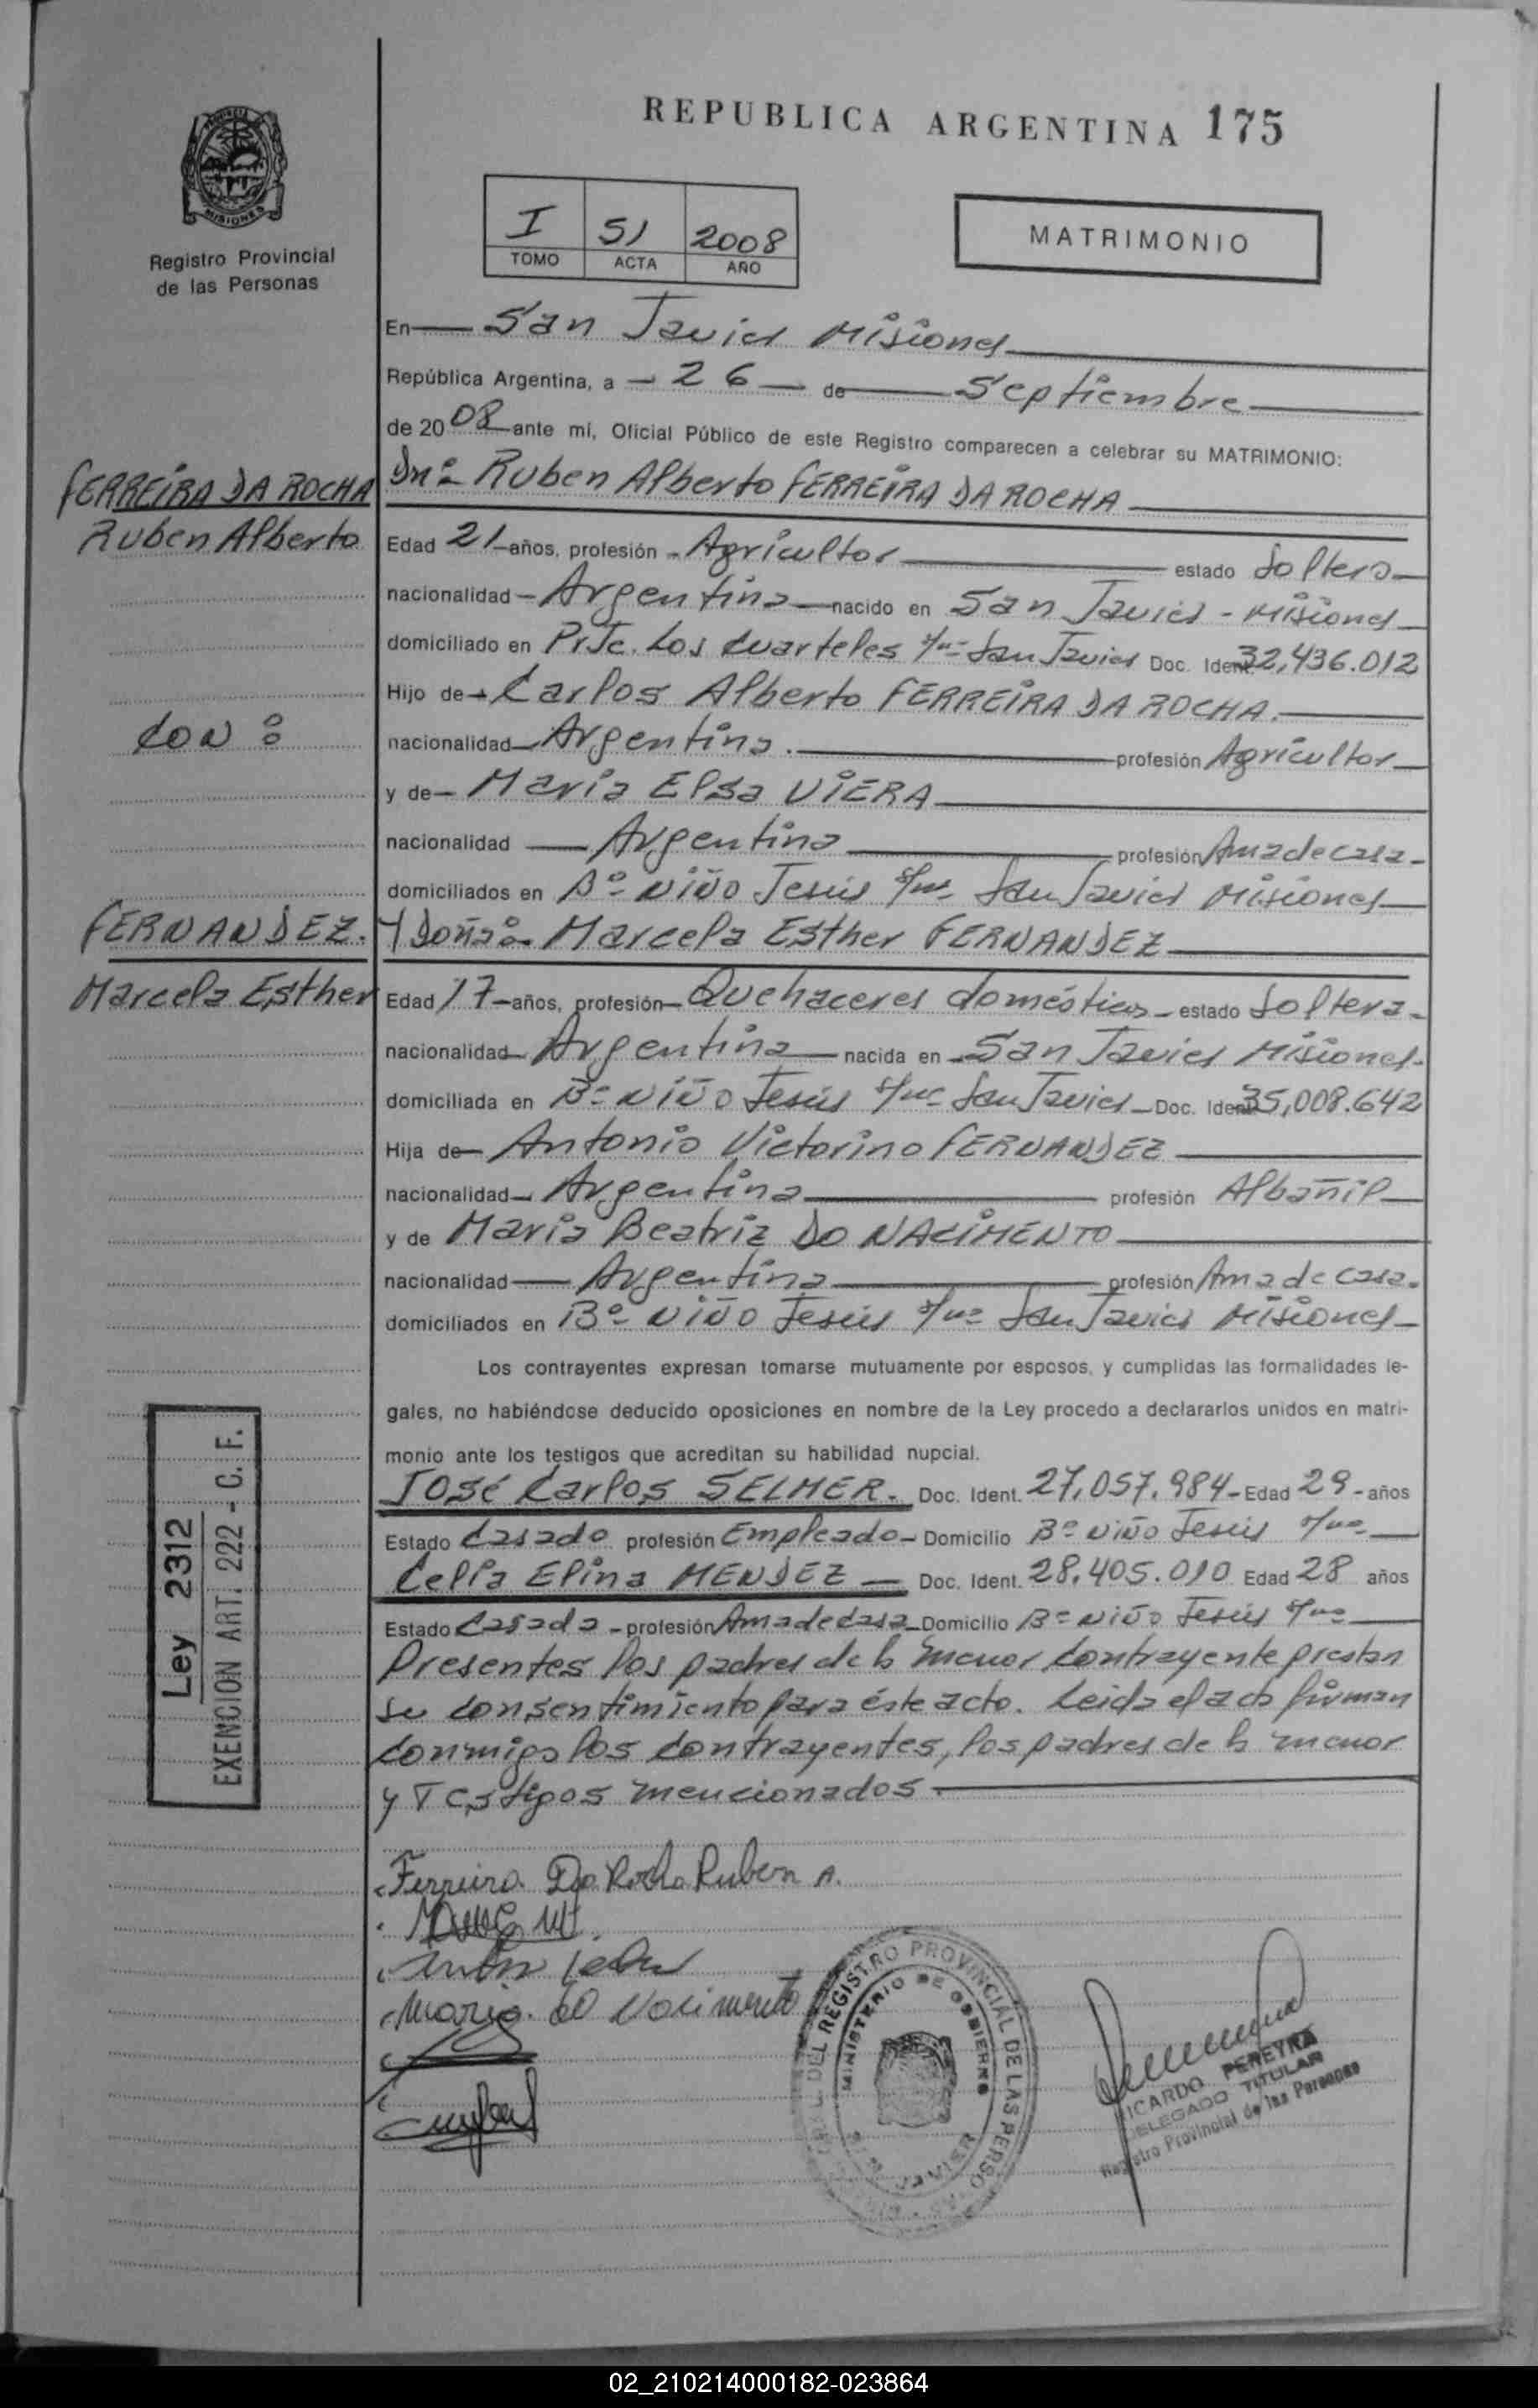 REPUBLICA ARGENTINA 175
MISIONES
Registro Provincial
de las Personas
I 51 2008
TOMO ACTA AÑO
MATRIMONIO
En San Javier Misiones
República Argentina, a 26 de Septiembre
de 2008 ante mí, Oficial Público de este Registro comparecen a celebrar su MATRIMONIO:
FERREIRA DA ROCHA
Ruben Alberto
Dn: Ruben Alberto FERREIRA DA ROCHA
Edad 21 años, profesión Agricultor estado Soltero
nacionalidad Argentina nacido en San Javier - Misiones
domiciliado en Pje. Los Cuarteles s/nº San Javier Doc. Ident. 32,436.012
Hijo de Carlos Alberto FERREIRA DA ROCHA.
CON:
nacionalidad Argentina. profesión Agricultor
y de María Elsa VIERA
nacionalidad Argentina profesión Ama de casa
domiciliados en Bº Niño Jesús s/nº San Javier Misiones
FERNANDEZ.
Marcela Esther
Y Doña: Marcela Esther FERNANDEZ
Edad 17 años, profesión Quehaceres domésticos estado Soltera
nacionalidad Argentina nacida en San Javier Misiones
domiciliada en Bº Niño Jesús s/nº San Javier Doc. Ident. 35,008.642
Hija de Antonio Victorino FERNANDEZ
nacionalidad Argentina profesión Albañil
y de María Beatriz DO NACIMENTO
nacionalidad Argentina profesión Ama de casa.
domiciliados en Bº Niño Jesús s/nº San Javier Misiones
Los contrayentes expresan tomarse mutuamente por esposos, y cumplidas las formalidades le-
gales, no habiéndose deducido oposiciones en nombre de la Ley procedo a declararlos unidos en matri-
monio ante los testigos que acreditan su habilidad nupcial.
José Carlos SELMER. Doc. Ident. 27,057.984 Edad 29 años
Estado Casado profesión Empleado Domicilio Bº Niño Jesús s/nº
Celia Elina MENDEZ Doc. Ident. 28.405.010 Edad 28 años
Estado Casada profesión Ama de casa Domicilio Bº Niño Jesús s/nº
Presentes los padres de la menor contrayente prestan
su consentimiento para éste acto. Leida el acta firman
conmigo los contrayentes, los padres de la menor
y Testigos mencionados
Ley 2312
EXENCION ART. 222 - C. F.
Ferreira Da Rocha Ruben A.
Maria do Nacimento
DEL REGISTRO PROVINCIAL DE LAS PERSO
MINISTERIO DE GOBIERNO
RICARDO PEREYRA
DELEGADO TITULAR
Registro Provincial de las Personas
02_210214000182-023864